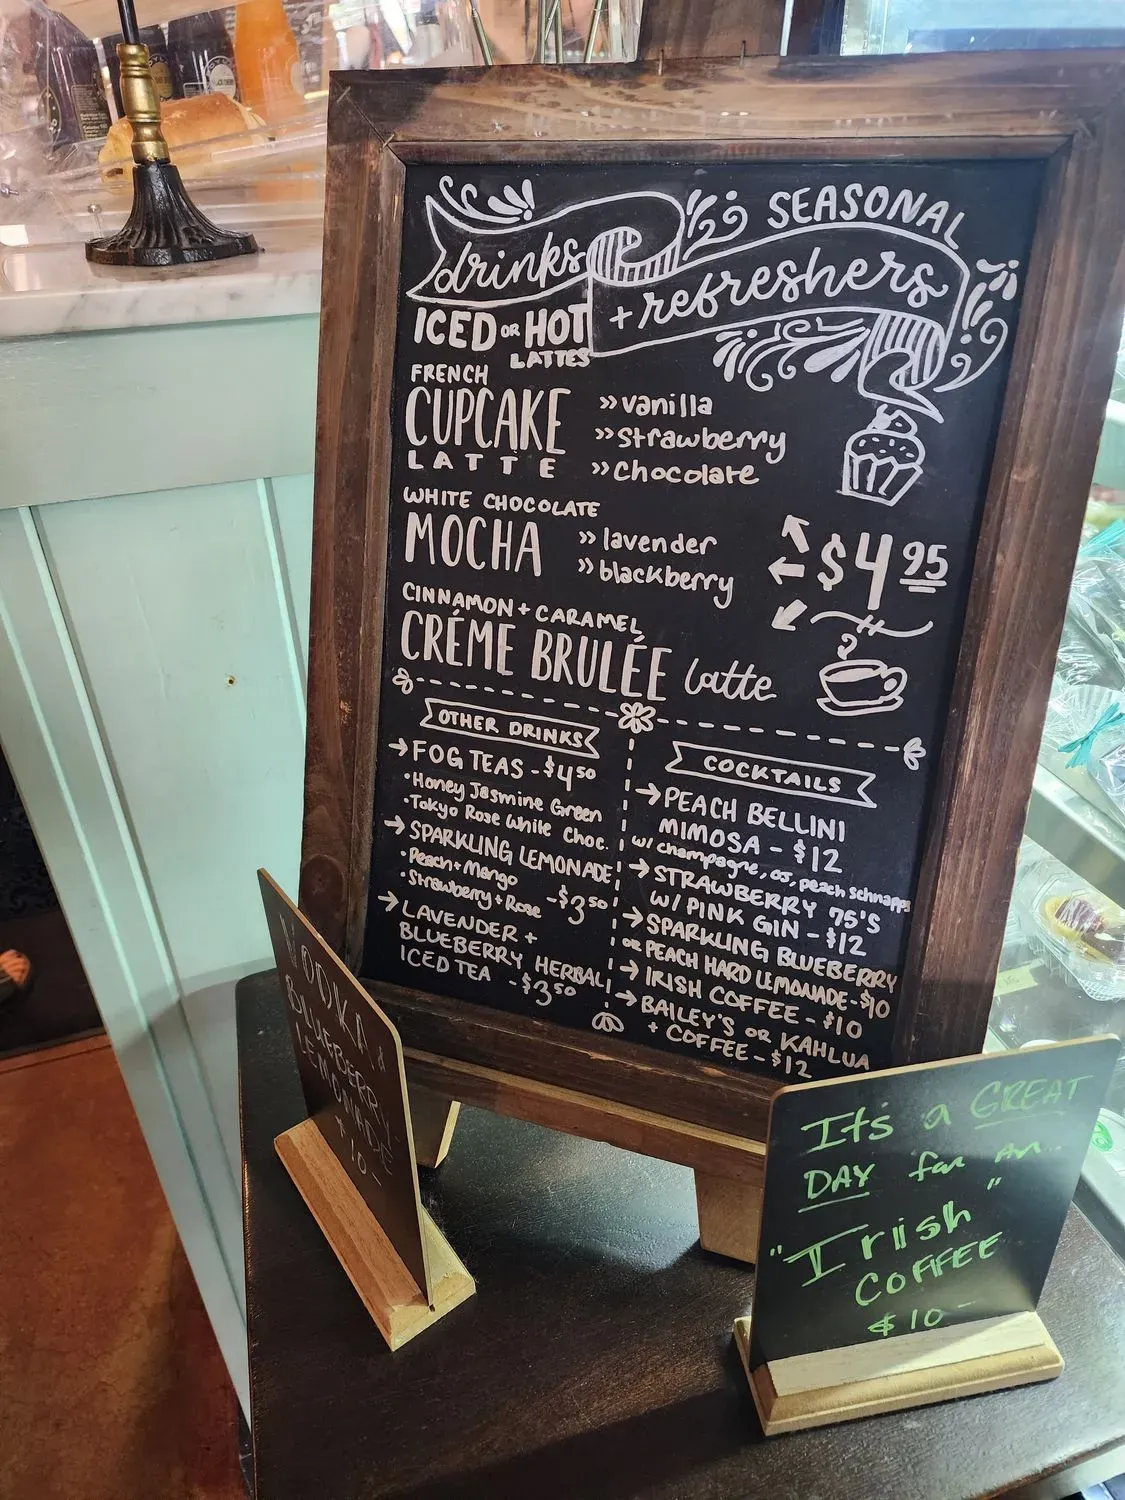 SEASONAL
drinks
+ refreshers
ICED OR HOT
LATTES
FRENCH
CUPCAKE
LATTE
»vanilla
»strawberry
»chocolate
WHITE CHOCOLATE
MOCHA
»lavender
»blackberry
$4 95
CINNAMON + CARAMEL
CRÉME BRULÉE latte
OTHER DRINKS
→ FOG TEAS - $4 50
• Honey Jasmine Green
• Tokyo Rose White Choc.
→ SPARKLING LEMONADE
• Peach + Mango
• Strawberry + Rose - $3 50
→ LAVENDER +
BLUEBERRY HERBAL
ICED TEA - $3 50
COCKTAILS
→ PEACH BELLINI
MIMOSA - $12
w/ champagne, OJ, peach schnapps
→ STRAWBERRY 75'S
W/ PINK GIN - $12
→ SPARKLING BLUEBERRY
OR PEACH HARD LEMONADE - $10
→ IRISH COFFEE - $10
→ BAILEY'S OR KAHLUA
+ COFFEE - $12
VODKA &
BLUEBERRY
LEMONADE
10-
It's a GREAT
DAY for AN...
"Irish"
COFFEE
$10-